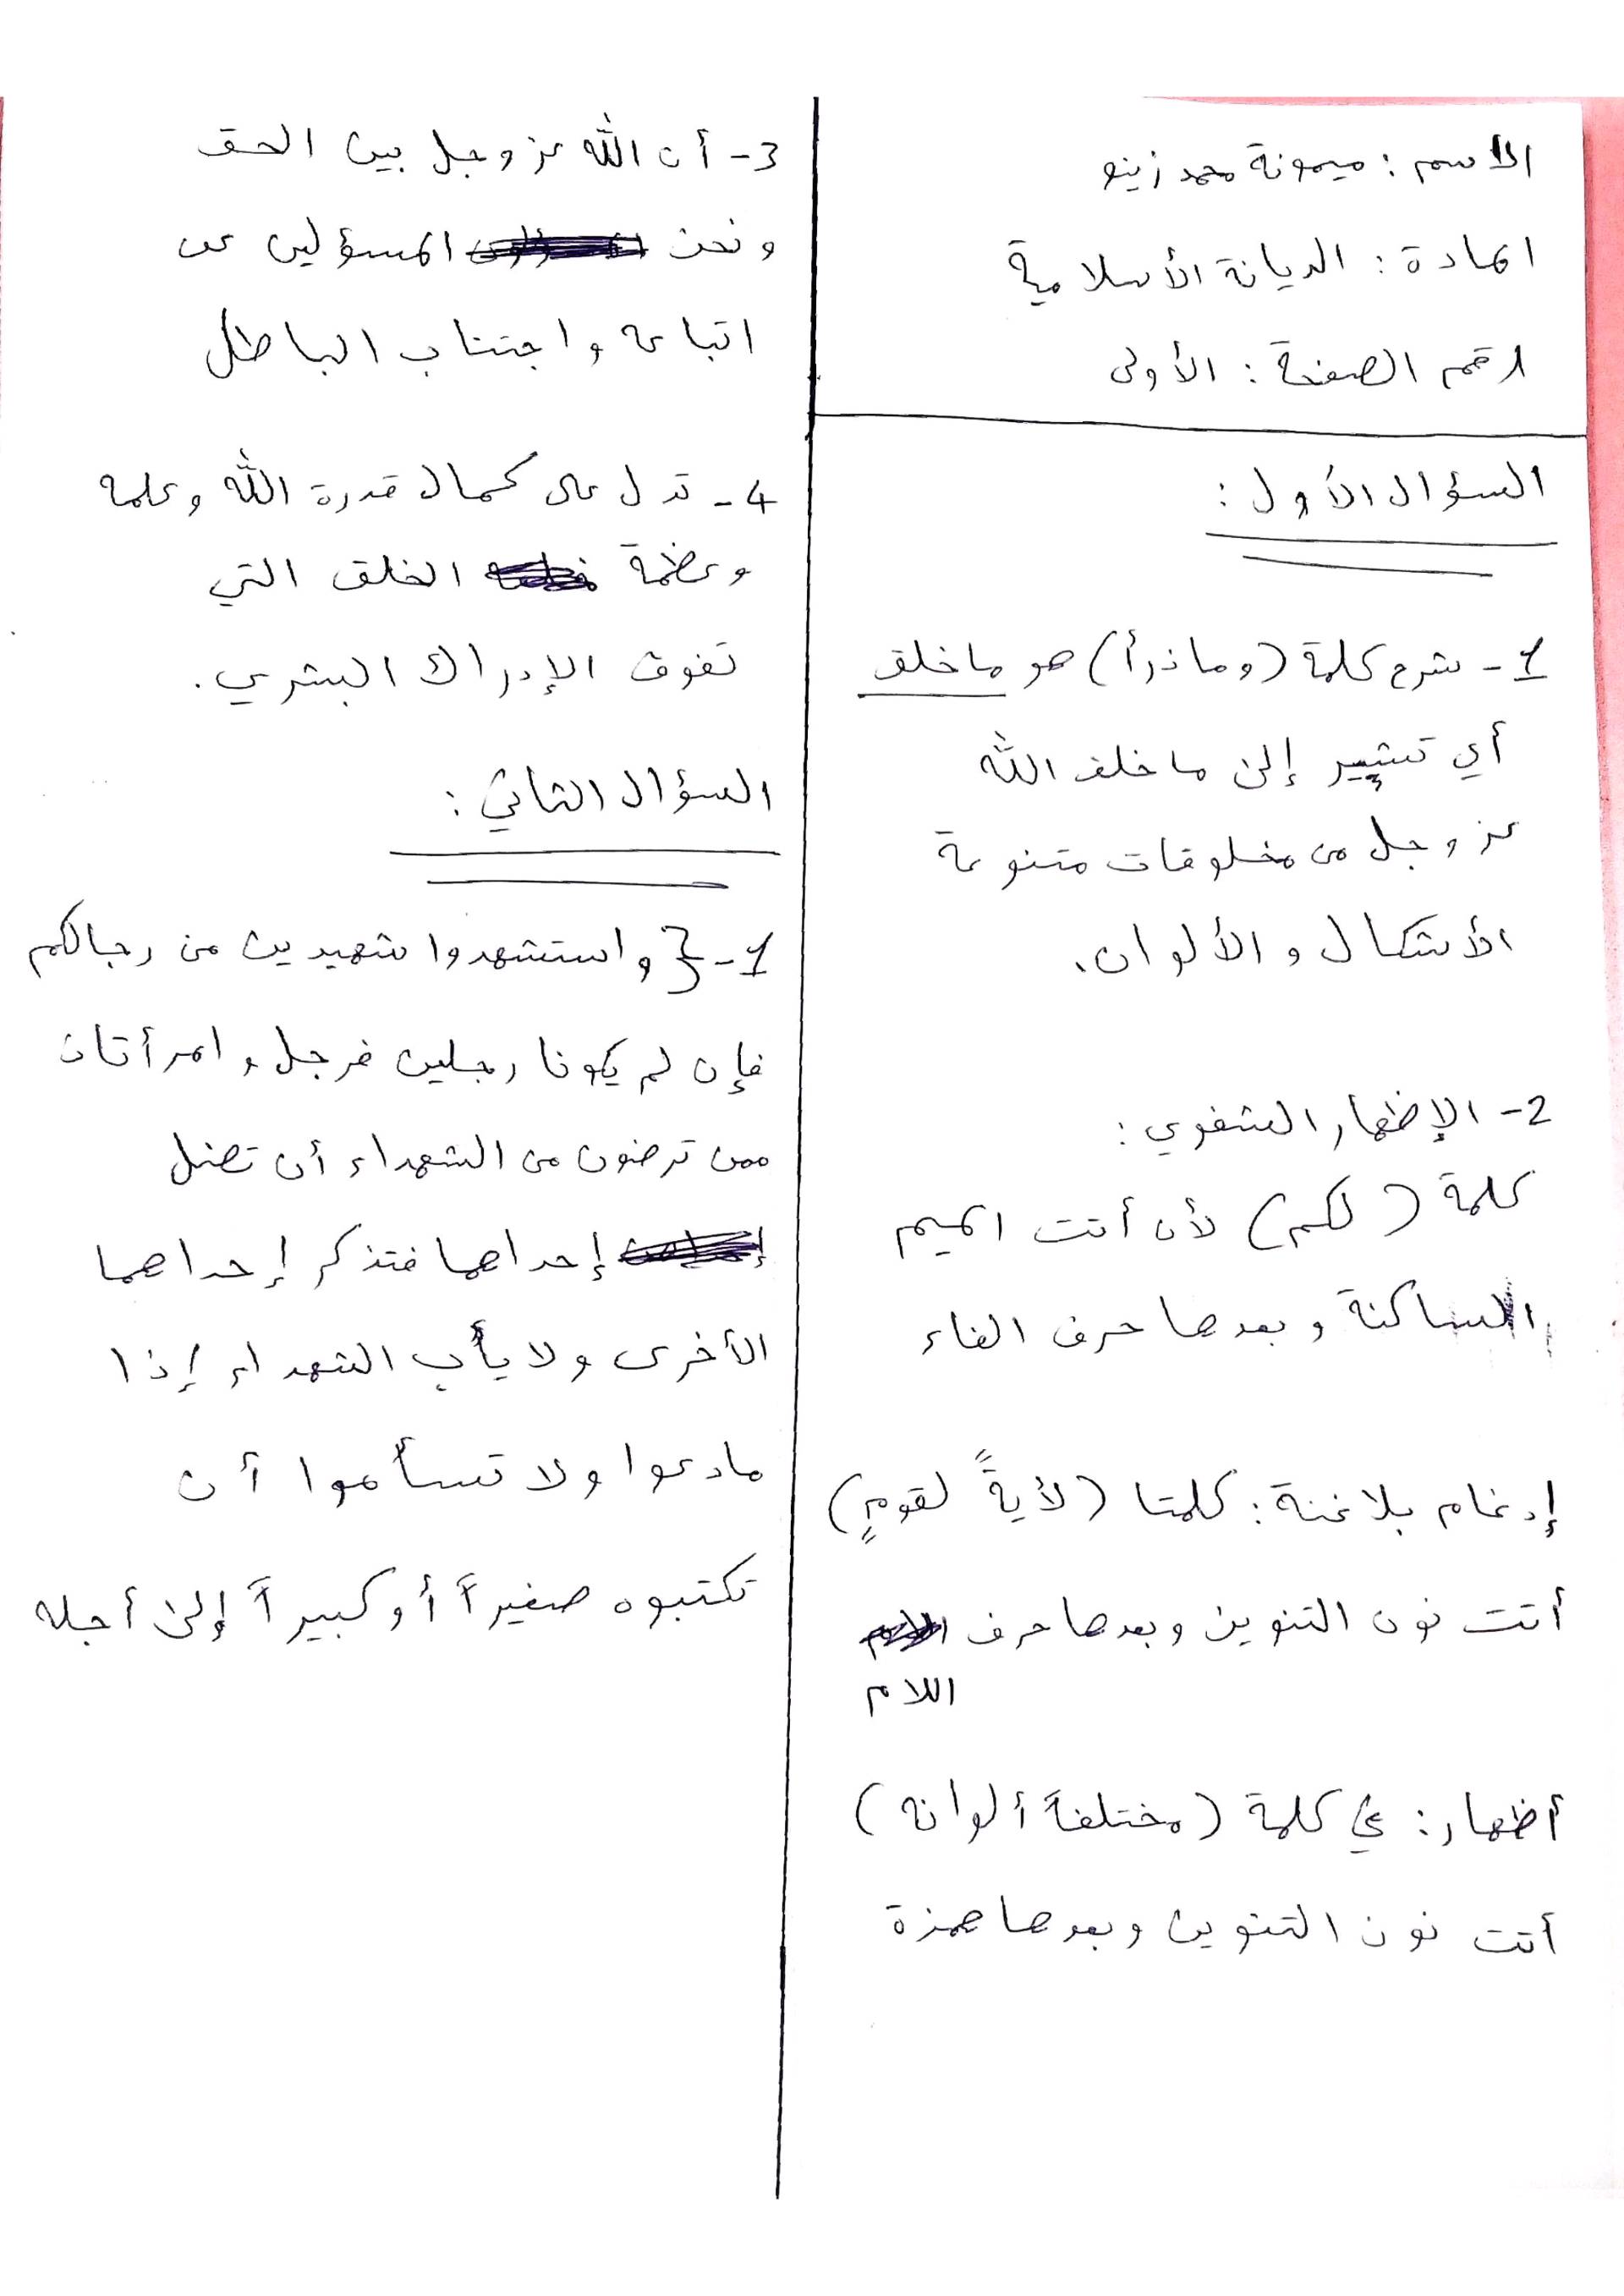 الاسم : ميمونة محمد زينو
المادة : الديانة الأسلامية
رقم الصفحة : الأولى
السؤال الأول :
1- شرح كلمة (وما ذرأ) هو ما خلق
أي تشير إلى ما خلق الله
عز وجل من مخلوقات متنوعة
الأشكال و الألوان.
2- الإظهار الشفوي :
كلمة (لكم) لأن أتت الميم
الساكنة وبعدها حرف الفاء
إدغام بلا غنة : كلمتا (لأيةً لقومٍ)
أتت نون التنوين وبعدها حرف
اللام
أظهار : في كلمة (مختلفاً ألوانه)
أتت نون التنوين وبعدها همزة
3- أن الله عز وجل بين الحق
ونحن المسؤلين عن
اتباعه واجتناب الباطل
4- تدل على كمال قدرة الله وعلمه
وعظمة الخلق التي
تفوق الإدراك البشري.
السؤال الثاني :
1- { واستشهدوا شهيدين من رجالكم
فإن لم يكونا رجلين فرجل وامرأتان
ممن ترضون من الشهداء أن تضل
إحداهما فتذكر إحداهما
الأخرى ولا يأب الشهداء إذا
مادعوا ولا تسأموا أن
تكتبوه صغيراً أو كبيراً إلى أجله